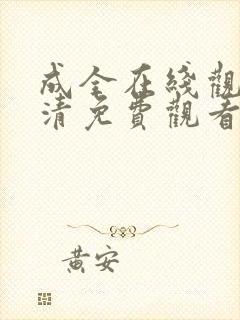 成全在綫觀
清免費觀看
黃安